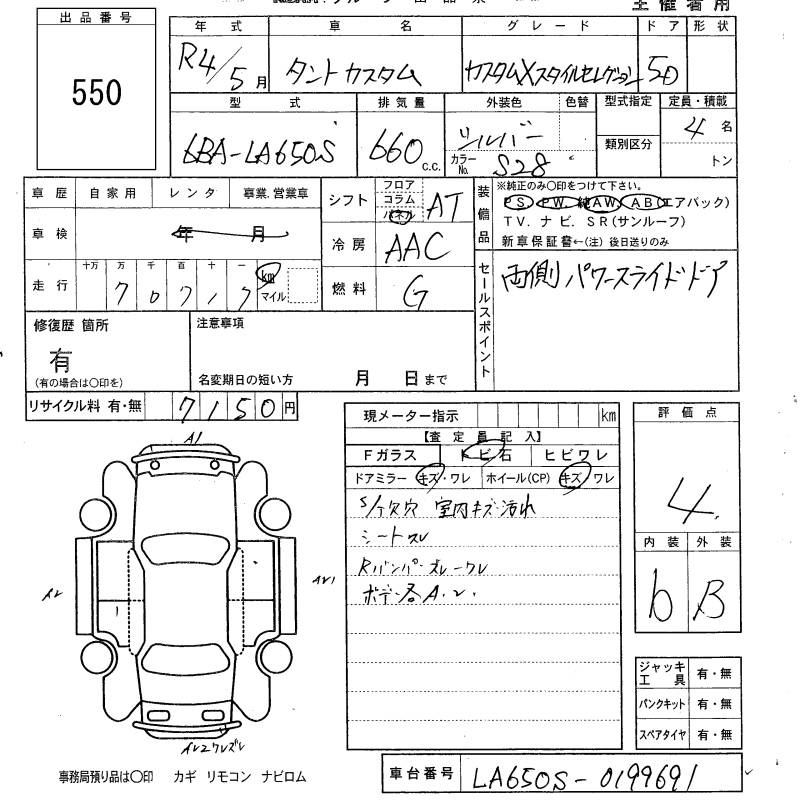 主催者用
出品番号
550
年式 車名 グレード ドア 形状
R4/5月 タントカスタム カスタムXスタイルセレクション 5D
型式 排気量 外装色 色替 型式指定 定員・積載
6BA-LA650S 660 c.c. シルバー 4名
類別区分
カラーNo. S28 トン
車歴 自家用 レンタ 事業.営業車
車検 年 月
走行 十万 万 千 百 十 一
7 0 7 1 7 km マイル
シフト フロア コラム パネル AT
冷房 AAC
燃料 G
装備品
※純正のみ○印をつけて下さい。
PS. PW. 純AW. AB(エアバック)
TV. ナビ. SR(サンルーフ)
新車保証書←(注) 後日送りのみ
セールスポイント
両側パワースライドドア
修復歴 箇所
有
(有の場合は○印を)
注意事項
名変期日の短い方 月 日まで
リサイクル料 有・無 7150円
現メーター指示 km
【査定員記入】
Fガラス トビ石 ヒビワレ
ドアミラー キズ・ワレ ホイール(CP) キズ/ワレ
室内キズ汚れ
シートスレ
Rバンパーズレ・ワレ
ボデー各A.
評価点
4.
内装 外装
b B
A1
ジャッキ工具 有・無
パンクキット 有・無
スペアタイヤ 有・無
事務局預り品は○印 カギ リモコン ナビロム
車台番号 LA650S-0199691